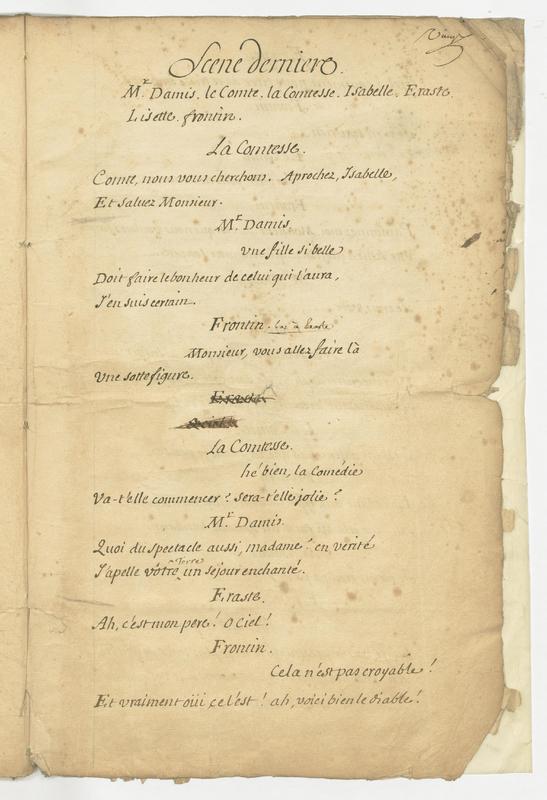 Scene derniere.
Mr. Damis. le Comte. la Comtesse. Isabelle. Eraste.
Lisette. frontin.
La Comtesse.
Comte, nous vous cherchons. Aprochez, Isabelle,
Et saluez Monsieur.
Mr. Damis
une fille si belle
Doit faire le bonheur de celui qui l'aura,
J'en suis certain.
Frontin. bas à Eraste
Monsieur, vous allez faire là
une sotte figure.
Eraste
La Comtesse.
hé bien, la Comédie
Va-t'elle commencer? sera-t'elle jolie?
Mr. Damis.
Quoi du spectacle aussi, madame? en vérité
Terre
J'apelle vôtre un sejour enchanté.
Eraste.
Ah, c'est mon pere! O Ciel!
Frontin.
Cela n'est pas croyable!
Et vraiment oüi ce l'est! ah, voici bien le diable!